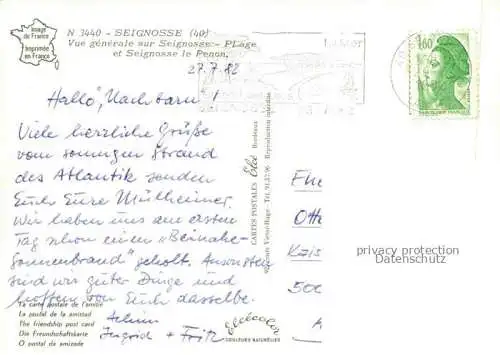 Image
de France
Imprimée
en France
N 3440 - SEIGNOSSE (40)
Vue générale sur Seignosse - Plage
et Seignosse le Penon.
27.7.82
1,60
Hallo, Nachbarn!
Viele herzliche Grüße
vom sonnigen Strand
des Atlantik senden
Euch Eure Mülheimer.
Wir haben uns am ersten
Tag schon einen "Beinahe-
Sonnenbrand" geholt. Ansonsten
sind wir guter Dinge und
hoffen von Euch dasselbe.
Achim
Ingrid + Fritz
La carte postale de l'amitié
La postal de la amistad
The friendship post card
Die Freundschaftskarte
O postal da amizade
CARTES POSTALES Elcé Bordeaux
Reproduction interdite
Elcécolor
COULEURS NATURELLES
Ehe
Otte
Kris
500
privacy protection
Datenschutz